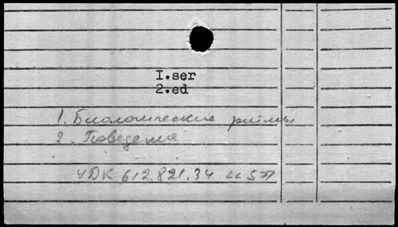 I.ser
2.ed
1. Биологические ритмы
2. Поведение
УДК 612.821.34